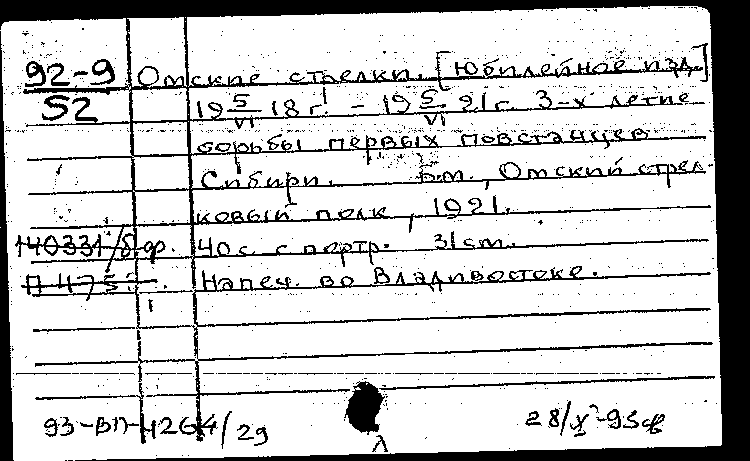 92-9 Омские стрелки. [Юбилейное изд.]
52 19 5/VI 18 г. - 19 5/VI 21 г. 3-х летие
борьбы первых повстанцев
Сибири. Б.м., Омский стрел-
ковый полк, 1921.
140331/б.др. 40 с. с портр. 31 cm.
Напеч. во Владивостоке.
93-ВП-4264/29 28/X-93